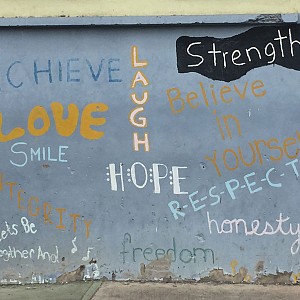 CHIEVE
LAUGH
Strength
LOVE
Believe
in
Yourse
SMILE
HOPE
R-E-S-P-E-C-T
NTEGRITY
honesty
ets Be
ogether And
freedom